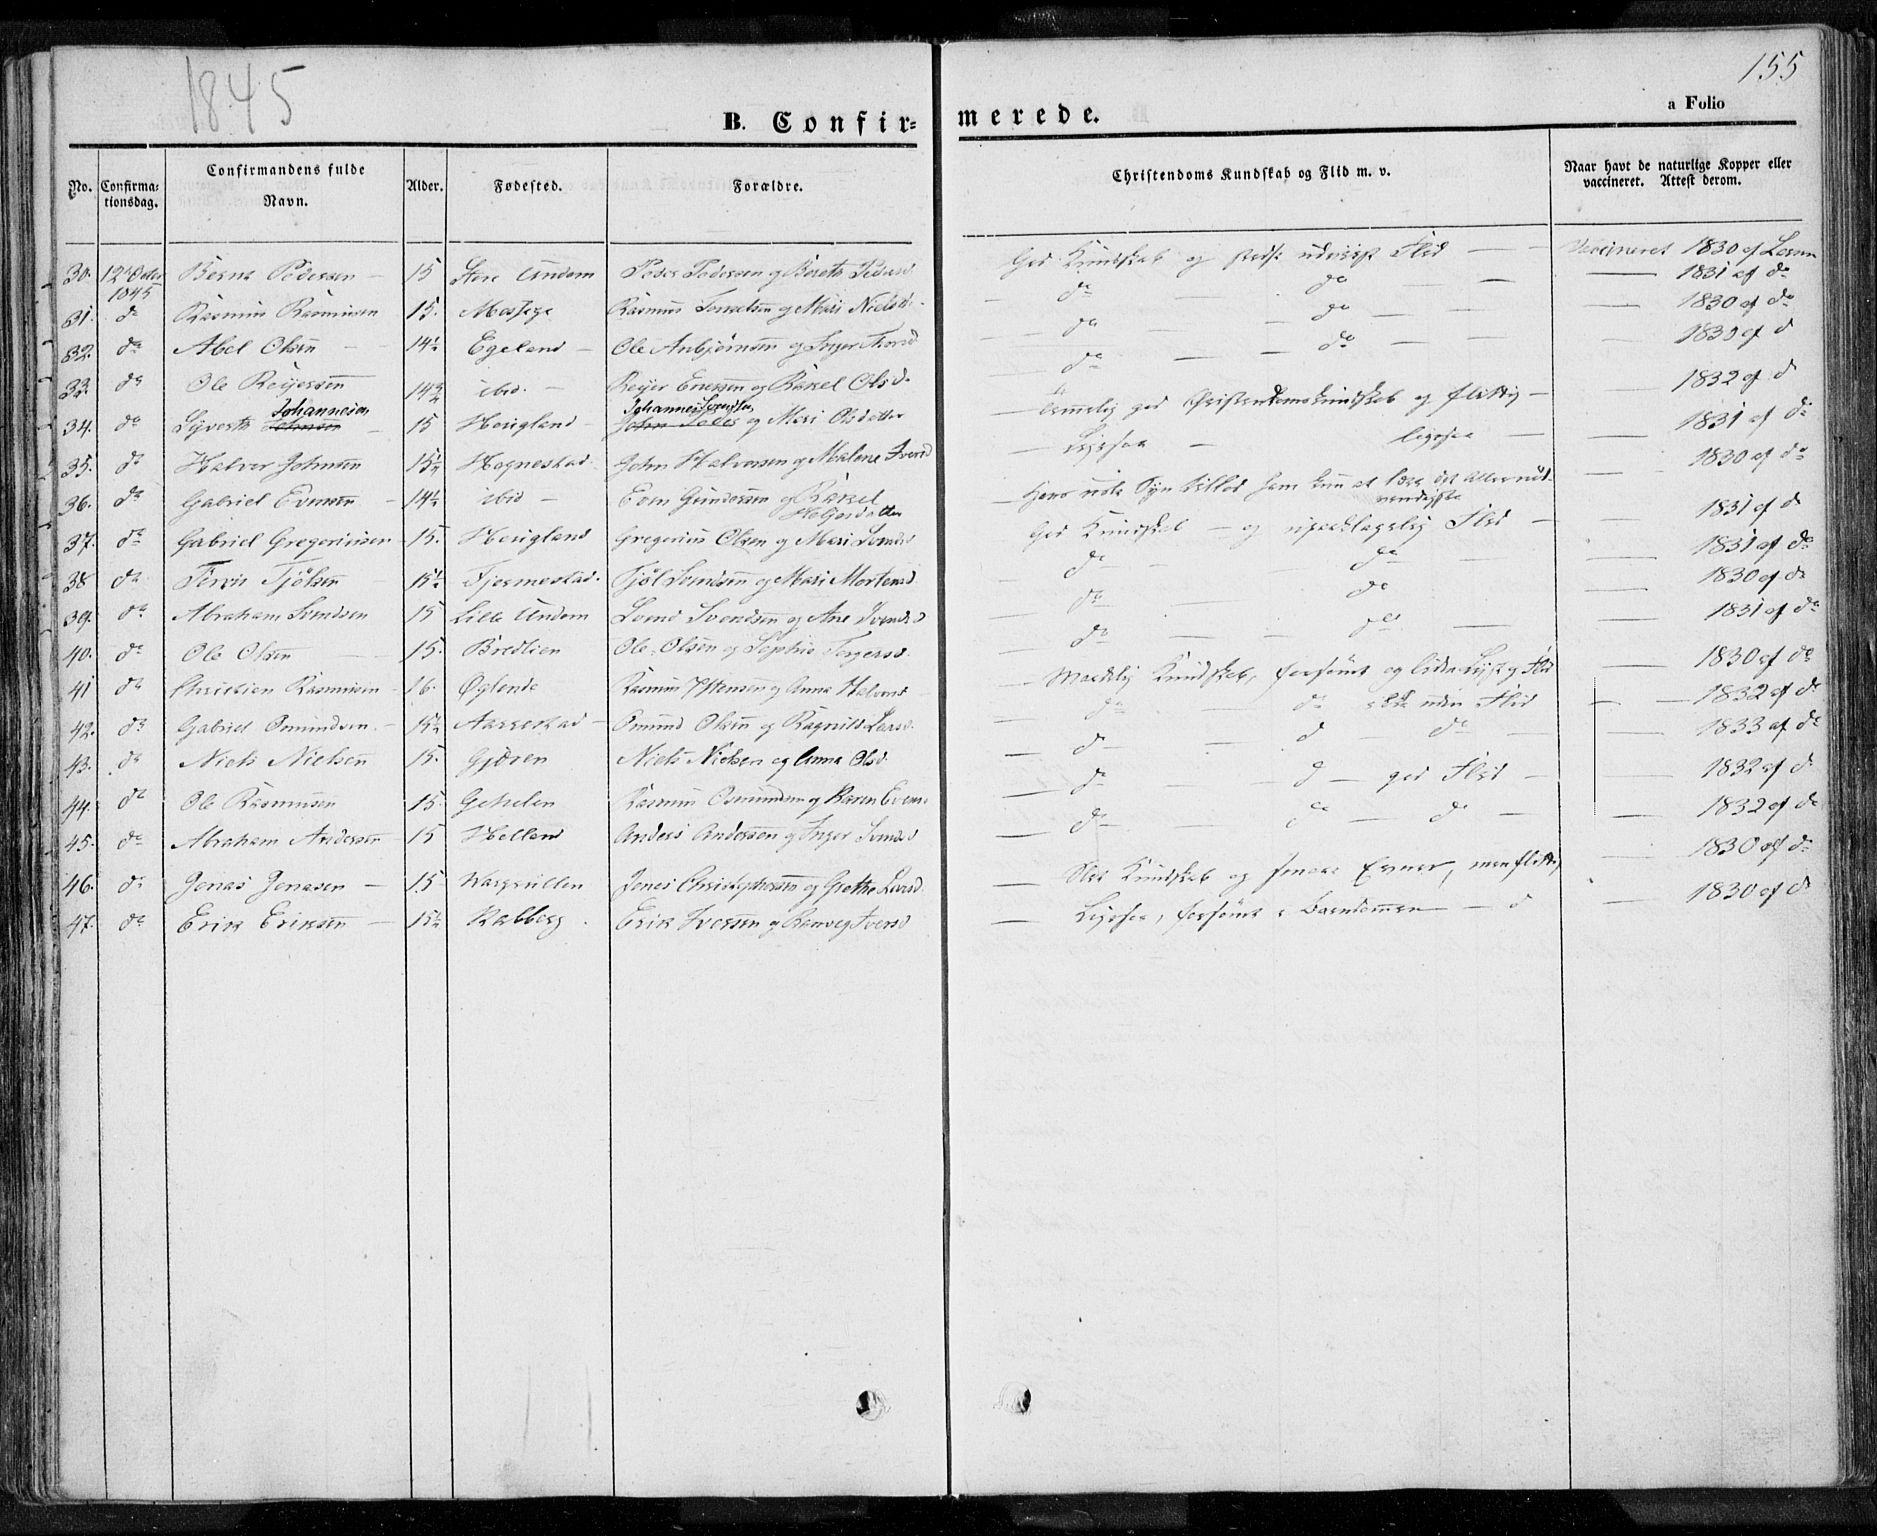 1845
155
a Folio
B. Confir= merede.
No. Confirma=tionsdag. Confirmandens fulde Navn. Alder. Fødested. Forældre. Christendoms Kundskab og Flid m. v. Naar havt de naturlige Kopper eller vaccineret. Attest derom.
30. 12te Octbr 1845 Pedersen 15 Store Undem Peder Pedersen og Berete Pedersd. God Kundskab og stedse udviist Flid Vaccineret 1830 af
31. do Rasmus Rasmussen 15. Mossige Rasmus og Mari Nielsd. do do 1831 af do
32. do Abel Olsen 14½ Egeland Ole Anbjørnsen og Inger do do 1830 af do
33. do Ole Reijersen 14¾ ibid. Reijer Enersen og Rakel Olsd. do do 1830 af d
34. do Sivert Johannesen Johnsen 15 Heigland Johannes Svendsen John og Mari Olsdatter Temmelig god Christendomskundskab og flittig 1832 af d
35. do Halvor Johnsen 15½ Hognestad John Halvorsen og Malene Iversd Ligesaa ligesaa 1831 af do
36. do Gabriel Evensen 14½ ibid Even Gundersen og Rakel Helgesdatter Hans Syn tillod ham kun at lære det allernødvendigste 1830 af do
37. do Gabriel Gregoriussen 15. Heigland Gregorius Olsen og Mari Svendsd God Kundskab og upaaklagelig Flid 1831 af d
38 do Tjølsen 15½ Fjermestad. Tjøl Svendsen og Mari Mortensd do do 1831 af do
39. do Abraham Svendsen 15 Lille Undem Svend Svendsen og Ane Svendsd do do 1830 af do
40. do Ole Olsen 15. Bredlien Ole Olsen og Sophie Torgersd. do do 1831 af do
41 do Christian Rasmussen 16. Øglende Rasmus og Anna Halvorsd Maadelig Kundskab, forsømt og liden Lyst og Flid 1830 af do
42. do Gabriel Omundsen 15½ Aarrestad Omund Olsen og Ragnild Larsd. do do uden Flid 1832 af do
43. do Niels Nielsen 15. Gjæren Niels Nielsen og Anna Olsd. d d do 1833 af do
44. do Ole Rasmussen 15. Rasmus Osmundsen og Karen Evens. do d god Flid 1832 af d
45. do Abraham Andersen 15 Helland Anders Andersen og Inger Svendsd do do do 1832 af do
46. do Jonas Jonasen 15 Jonas Christophersen og Grethe Larsd. Slet Kundskab og smaae Evner, men flittig 1830 af do
47. do Erik Eriksen 15½ Kalberg Erik Iversen og Ranveg Iversd Ligesaa, forsømt i Barndommen d 1830 af d